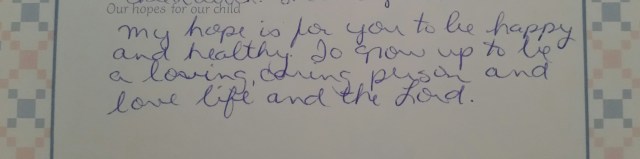 Our hopes for our child
My hope is for you to be happy
and healthy. To grow up to be
a loving, caring person and
love life and the Lord.